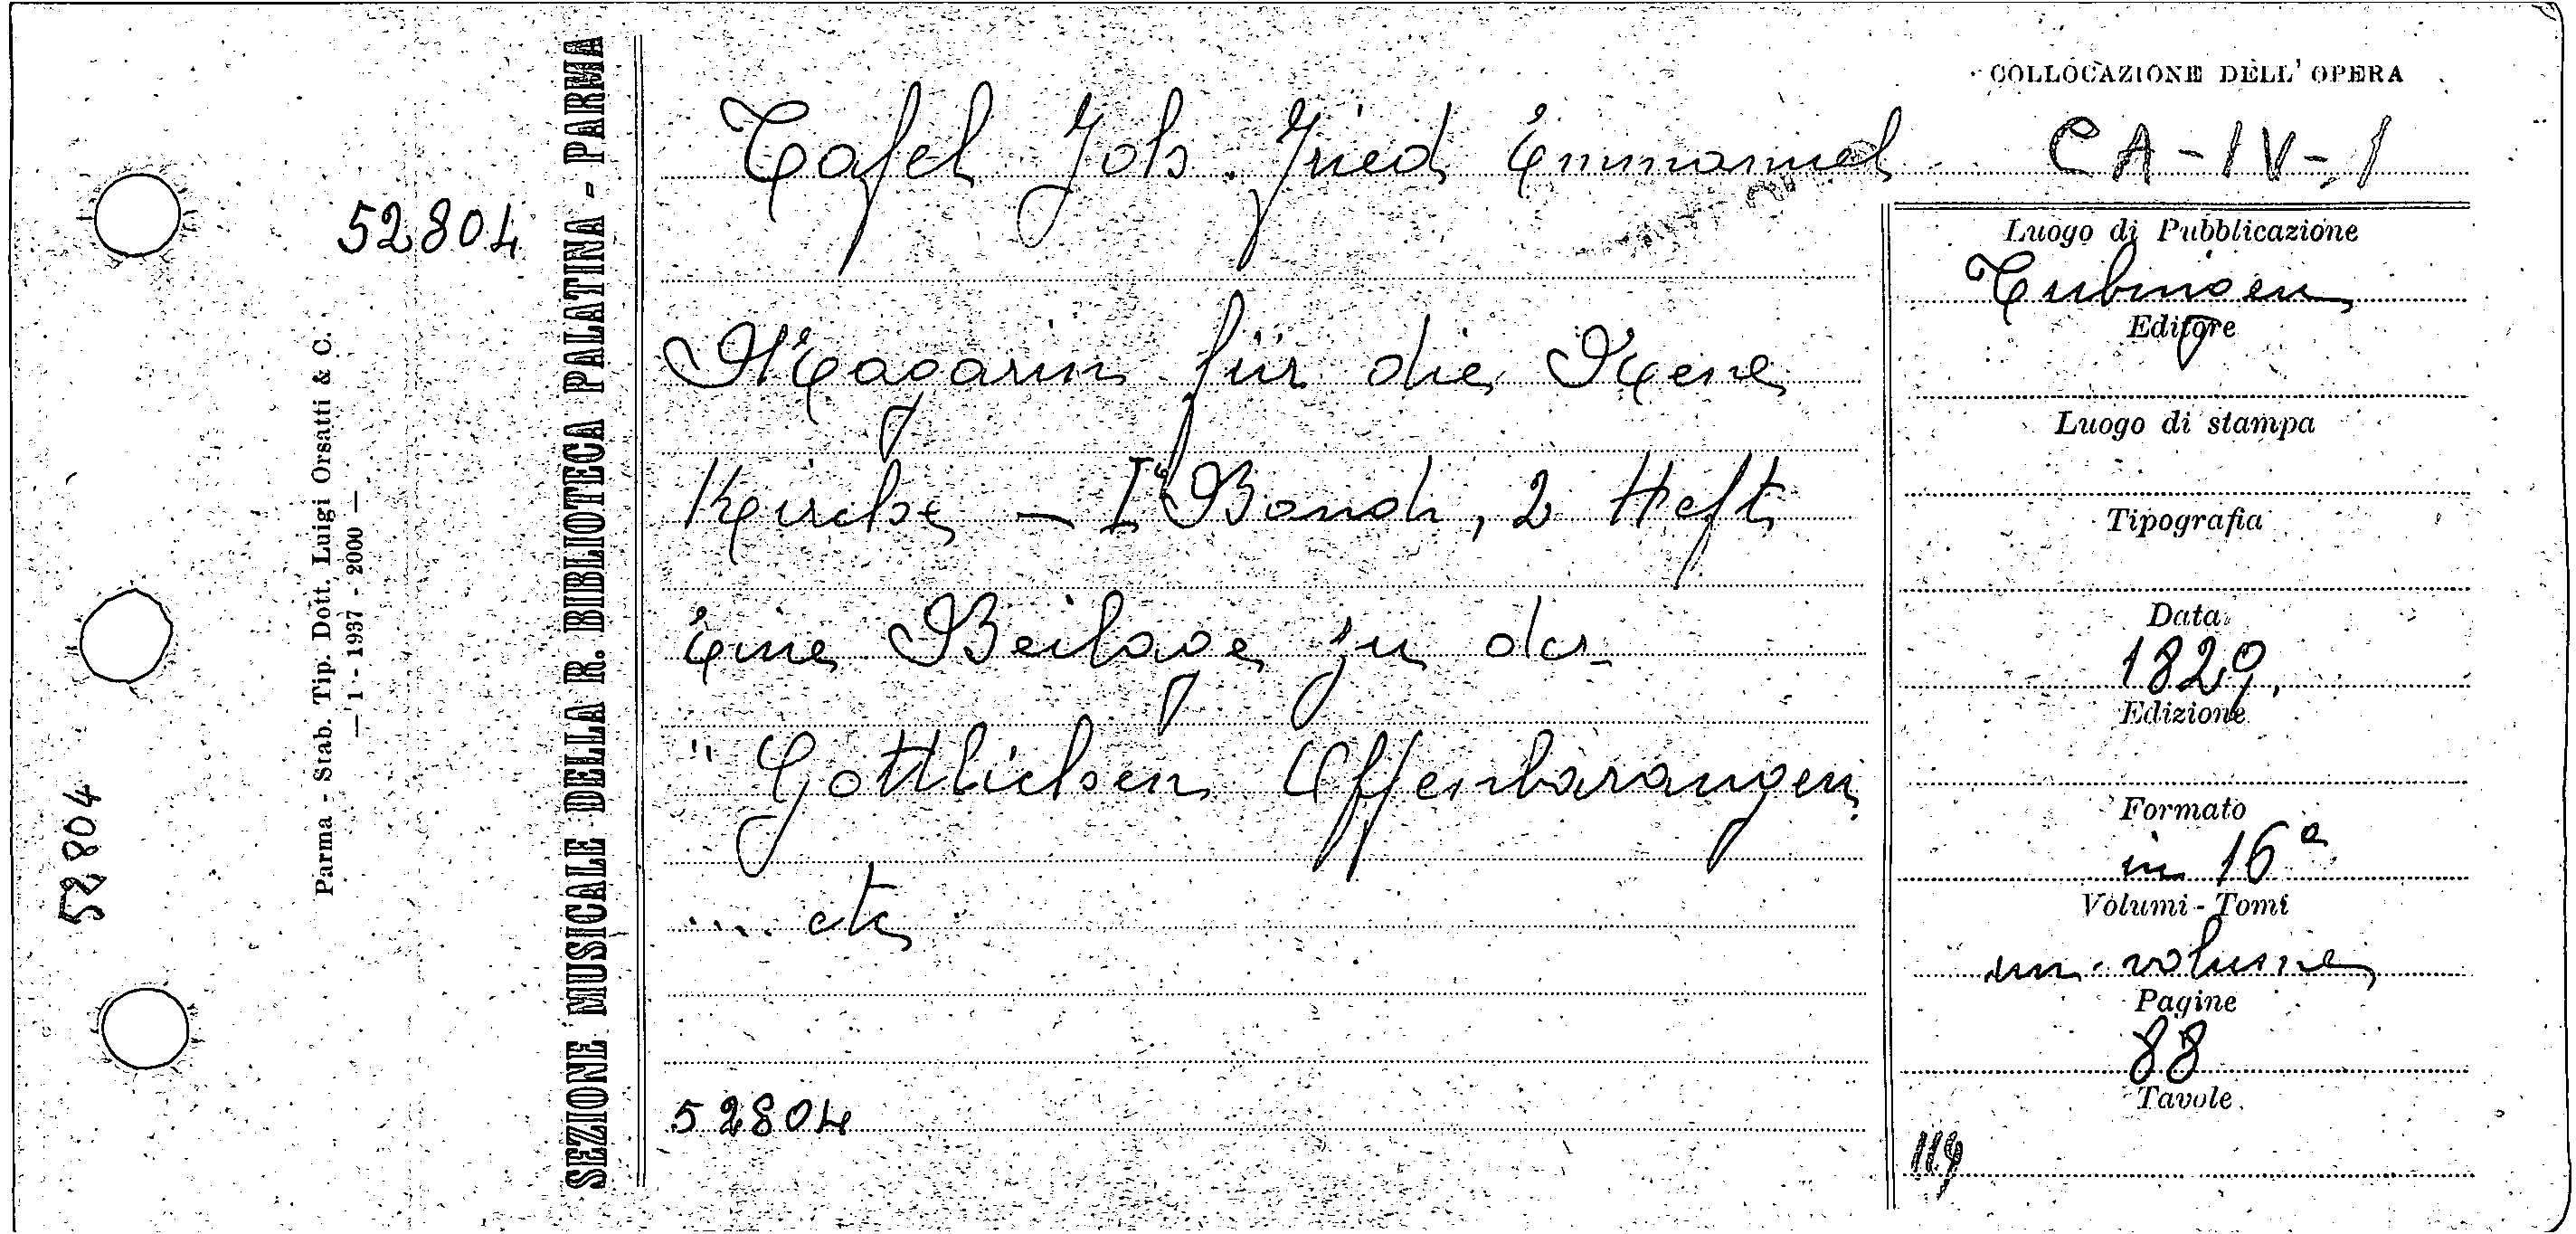 COLLOCAZIONE DELL' OPERA
Tafel Joh. Fried Emmanuel
CA-IV-1
52804
Magazin für die Neue
Kirche - I° Band, 2 Heft
Eine Beilage zu der
"Gottlichen Offenbarangen
.... etc
52804
Luogo di Pubblicazione
Tubingen
Editore
Luogo di stampa
Tipografia
Data
1829
Edizione
Formato
in 16°
Volumi - Tomi
un volume
Pagine
88
Tavole
119
SEZIONE MUSICALE DELLA R. BIBLIOTECA PALATINA - PARMA
Parma - Stab. Tip. Dott. Luigi Orsatti & C.
— 1 - 1937 - 2000 —
52804